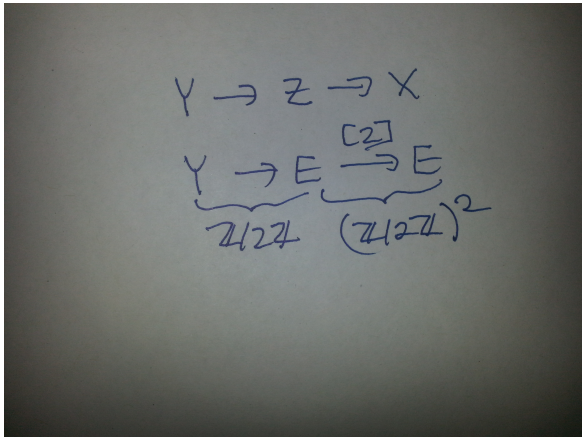 Y → Z → X
[2]
Y → E → E
ℤ/2ℤ (ℤ/2ℤ)²